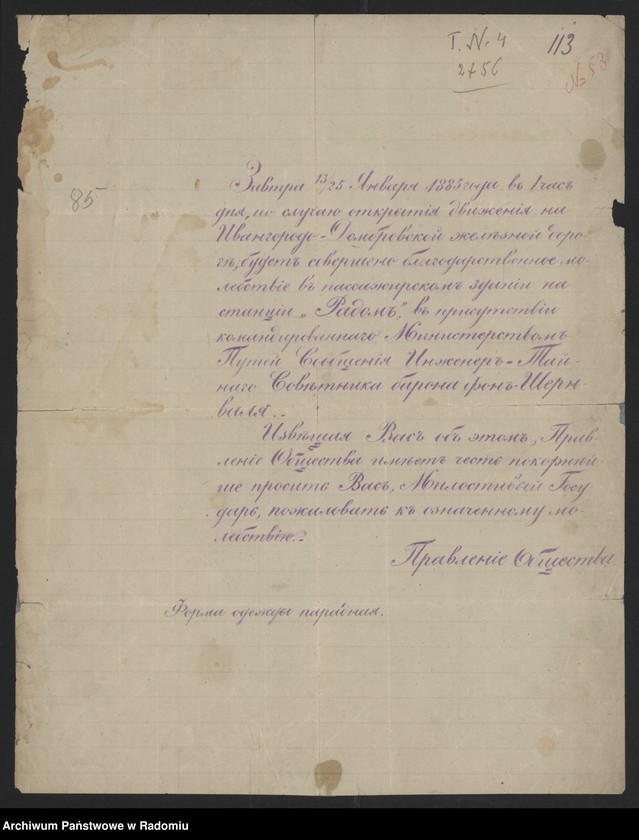 I. N. 4
2456
113
№ 53
85
Завтра 13/25 Января 1885 года въ 1 часъ
дня, по случаю открытія движенія на
Ивангородо-Домбровской желѣзной доро-
гѣ, будетъ совершено благодарственное мо-
лебствіе въ пассажирскомъ зданіи на
станціи „Радомъ", въ присутствіи
командированнаго Министерствомъ
Путей Сообщенія Инженеръ-Тай-
наго Совѣтника барона фонъ-Шерн-
валя.
Извѣщая Васъ объ этомъ, Прав-
леніе Общества имѣетъ честь покорнѣй-
ше просить Васъ, Милостивый Госу
дарь, пожаловать къ означенному мо-
лебствію.
Правленіе Общества
Форма одежды парадная.
Archiwum Państwowe w Radomiu